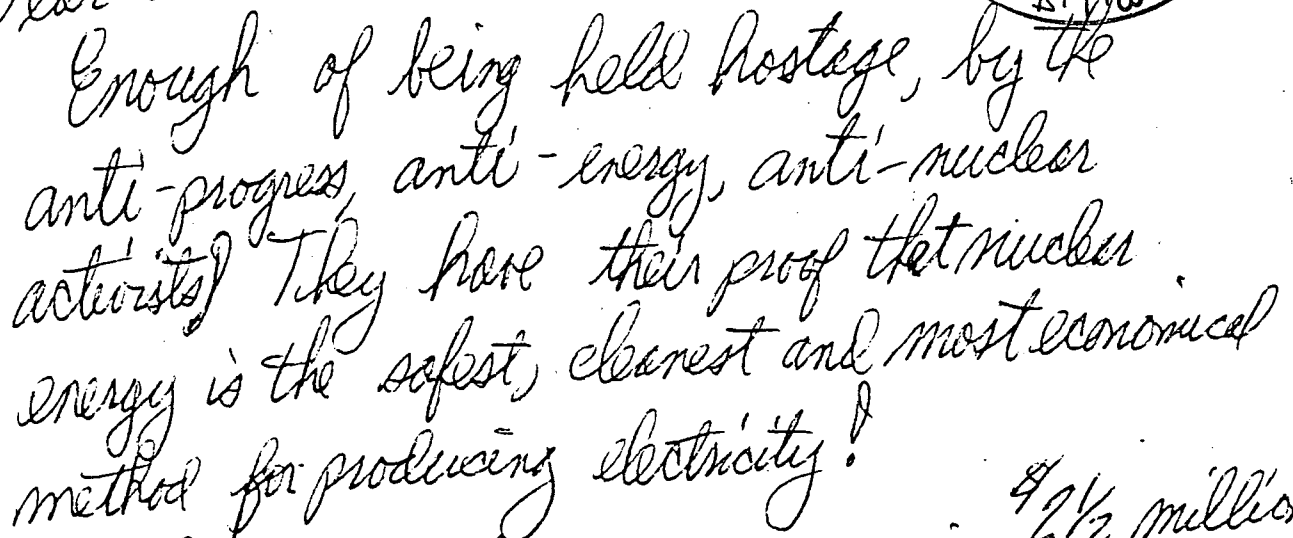 Enough of being held hostage, by the
anti-progress, anti-energy, anti-nuclear
activists! They have their proof that nuclear
energy is the safest, cleanest and most economical
method for producing electricity!
$2½ millio